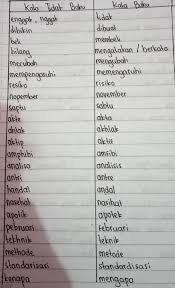 Kata Tidak Baku Kata Baku
enggak, nggak tidak
dibikin dibuat
beli membeli
bilang mengatakan / berkata
merubah mengubah
mempengaruhi memengaruhi
resiko risiko
nopember november
saptu sabtu
akte akta
ahlak akhlak
aktip aktif
amphibi amfibi
analisa analisis
antri antre
handal andal
nasehat nasihat
apotik apotek
pebruari februari
tekhnik teknik
methode metode
standarisasi standardisasi
kenapa mengapa